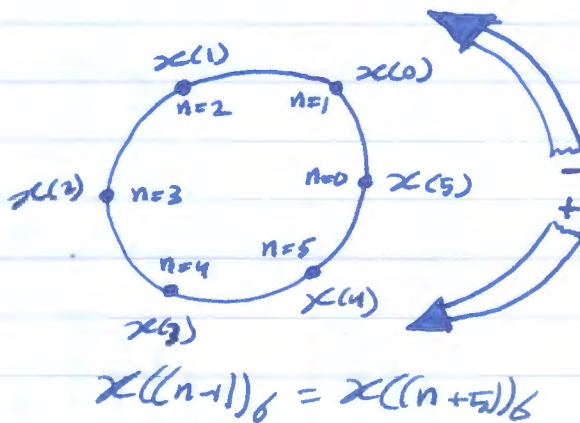 x(1) x(0)
n=2 n=1
x(2) n=3 n=0 x(5)
n=4 n=5
x(3) x(4)
−
+
x((n-1))6 = x((n+5))6